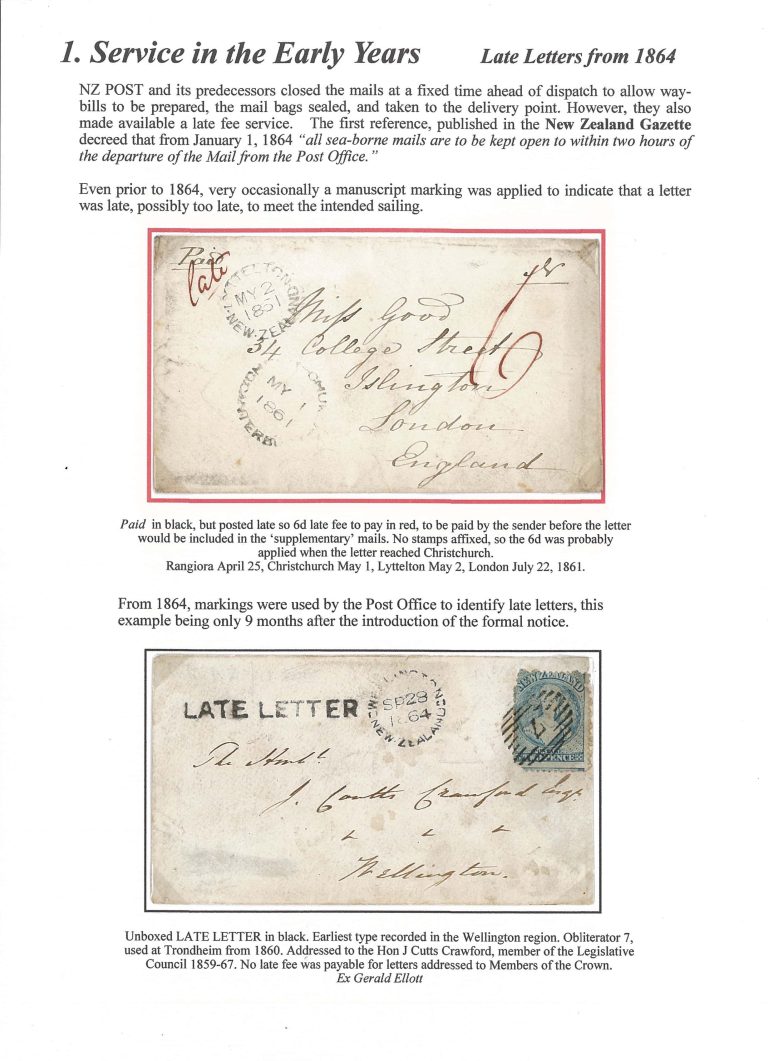 1. Service in the Early Years Late Letters from 1864
NZ POST and its predecessors closed the mails at a fixed time ahead of dispatch to allow way-
bills to be prepared, the mail bags sealed, and taken to the delivery point. However, they also
made available a late fee service. The first reference, published in the New Zealand Gazette
decreed that from January 1, 1864 “all sea-borne mails are to be kept open to within two hours of
the departure of the Mail from the Post Office.”
Even prior to 1864, very occasionally a manuscript marking was applied to indicate that a letter
was late, possibly too late, to meet the intended sailing.
Paid
late
LYTTELTON
MY 2
1861
NEW·ZEALAND
Miss Good
34 College Street
6
Islington
MY 1
1861
London
England
Paid in black, but posted late so 6d late fee to pay in red, to be paid by the sender before the letter
would be included in the ‘supplementary’ mails. No stamps affixed, so the 6d was probably
applied when the letter reached Christchurch.
Rangiora April 25, Christchurch May 1, Lyttelton May 2, London July 22, 1861.
From 1864, markings were used by the Post Office to identify late letters, this
example being only 9 months after the introduction of the formal notice.
LATE LETTER
WELLINGTON
SP 28
1864
NEW·ZEALAND
NEW ZEALAND
7
PENCE
The Honble
J. Coutts Crawford Esqr
Wellington.
Unboxed LATE LETTER in black. Earliest type recorded in the Wellington region. Obliterator 7,
used at Trondheim from 1860. Addressed to the Hon J Cutts Crawford, member of the Legislative
Council 1859-67. No late fee was payable for letters addressed to Members of the Crown.
Ex Gerald Ellott